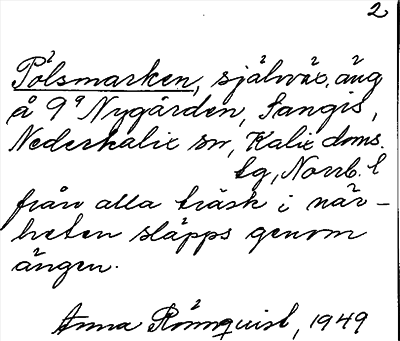 2
Pölsmarken, självväx. äng
å gᵈ Nygården, Sangis,
Nederkalix sn, Kalix doms.
tg, Norrb. l
från alla träsk i när-
heten släpps genom
ängen.
Anna Rönnquist, 1949